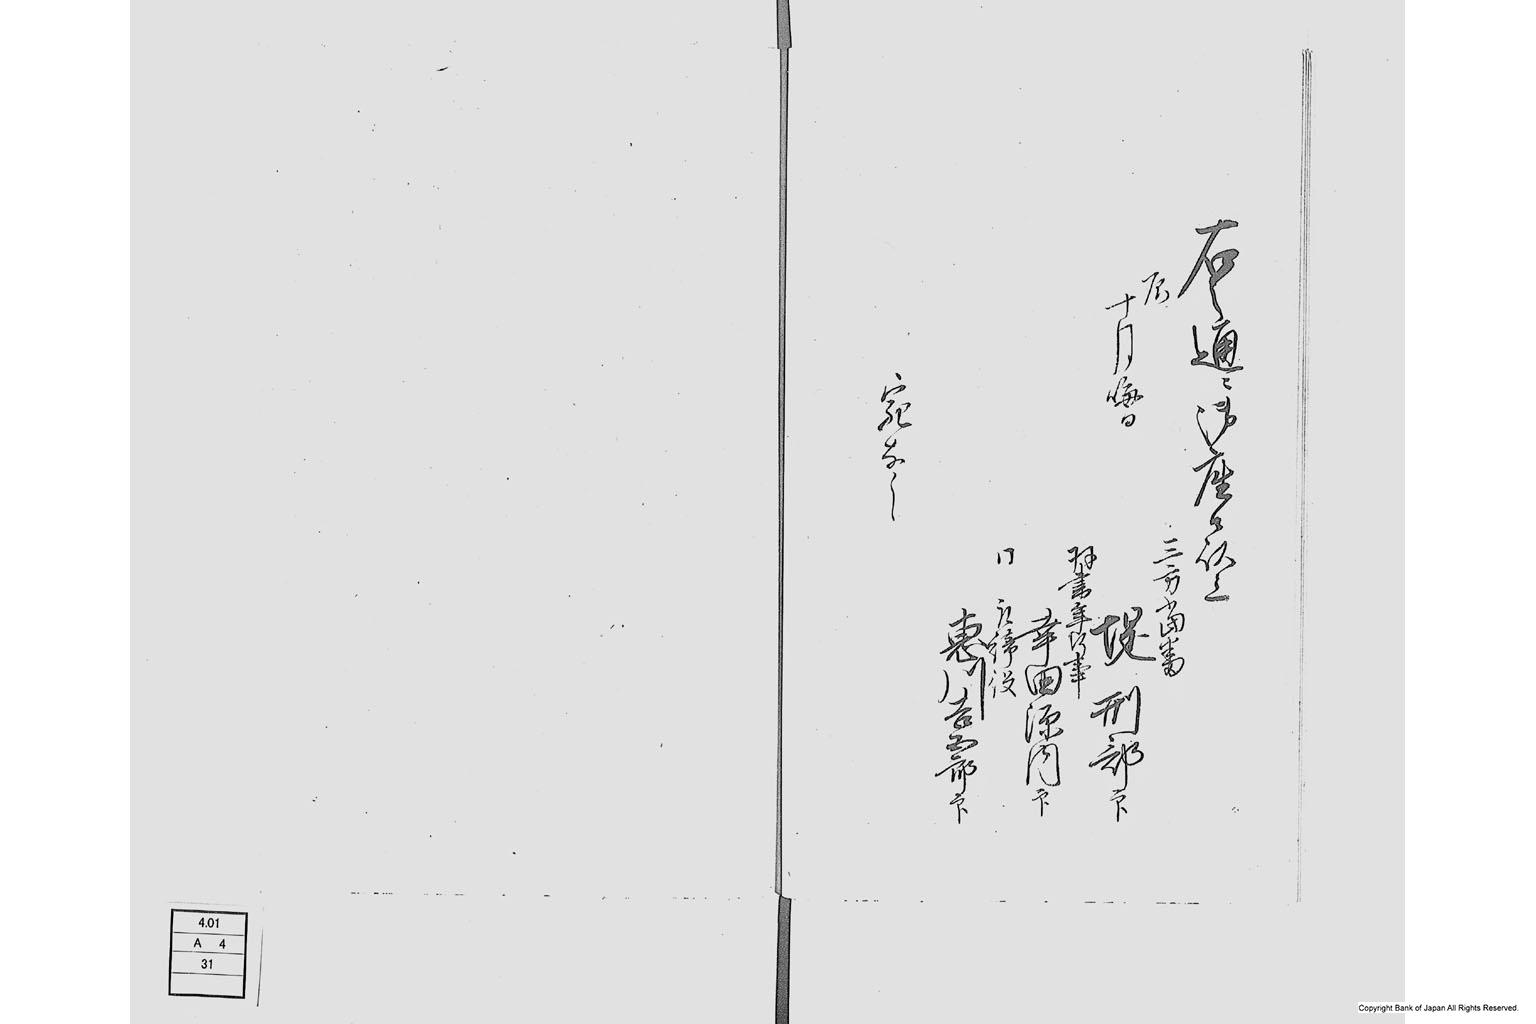 右之通ニ御座候以上
辰
十月晦日
三方當番
堤刑部印
羽書年行事
幸田源内印
同 取締役
恵川吉五郎印
宛なし
4.01
A 4
31
Copyright Bank of Japan All Rights Reserved.